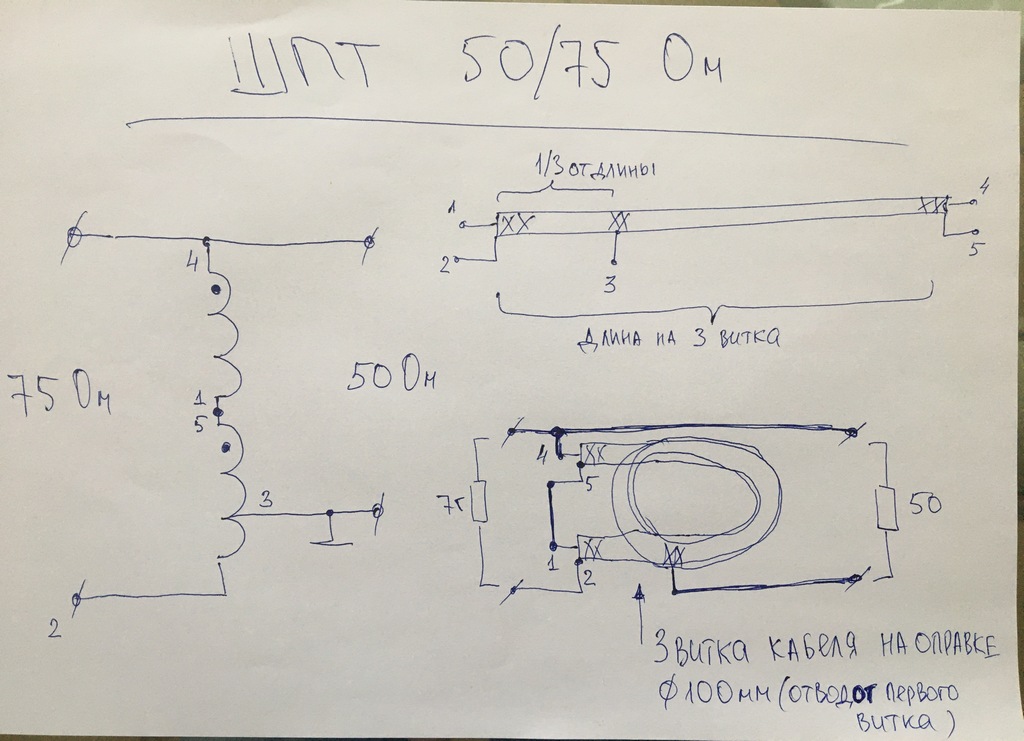 ШПТ 50/75 Ом
1/3 ОТ ДЛИНЫ
1
2
3
4
5
ДЛИНА НА 3 ВИТКА
4
75 Ом
50 Ом
1
5
3
2
4
5
75
50
1
2
3 ВИТКА КАБЕЛЯ НА ОПРАВКЕ
Ø 100мм (ОТВОД ОТ ПЕРВОГО
ВИТКА)